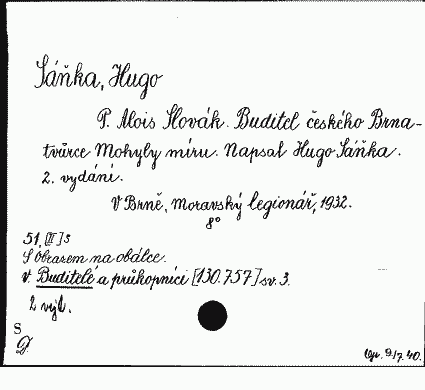 Sáňka, Hugo
P. Alois Slovák. Buditel českého Brna-
tvůrce Mohyly míru. Napsal Hugo Sáňka.
2. vydání.
V Brně, Moravský legionář, 1932.
8°
51, [II] s
S Obrazem na obálce.
v. Buditelé a průkopníci [130.757] sv. 3.
2 výt.
S
9/7. 40.